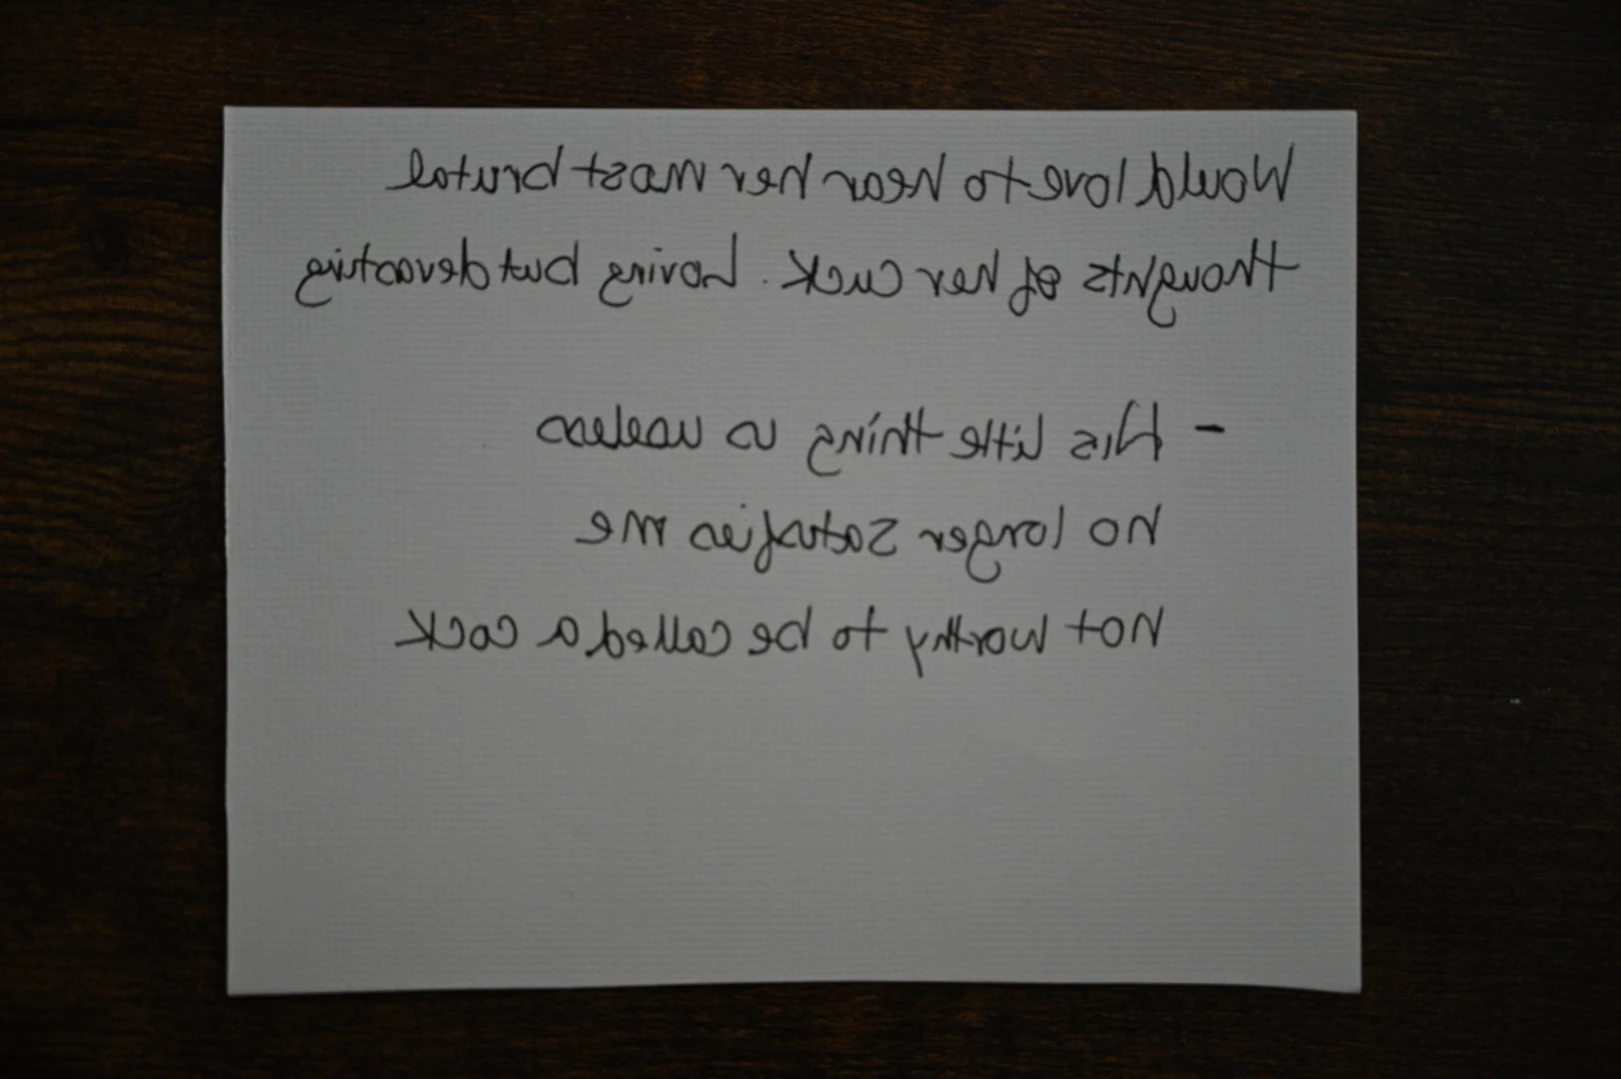 Would love to hear her most brutal
thoughts of her cuck. Loving but devasting
- His little thing is useless
No longer satisfies me
Not worthy to be called a cock